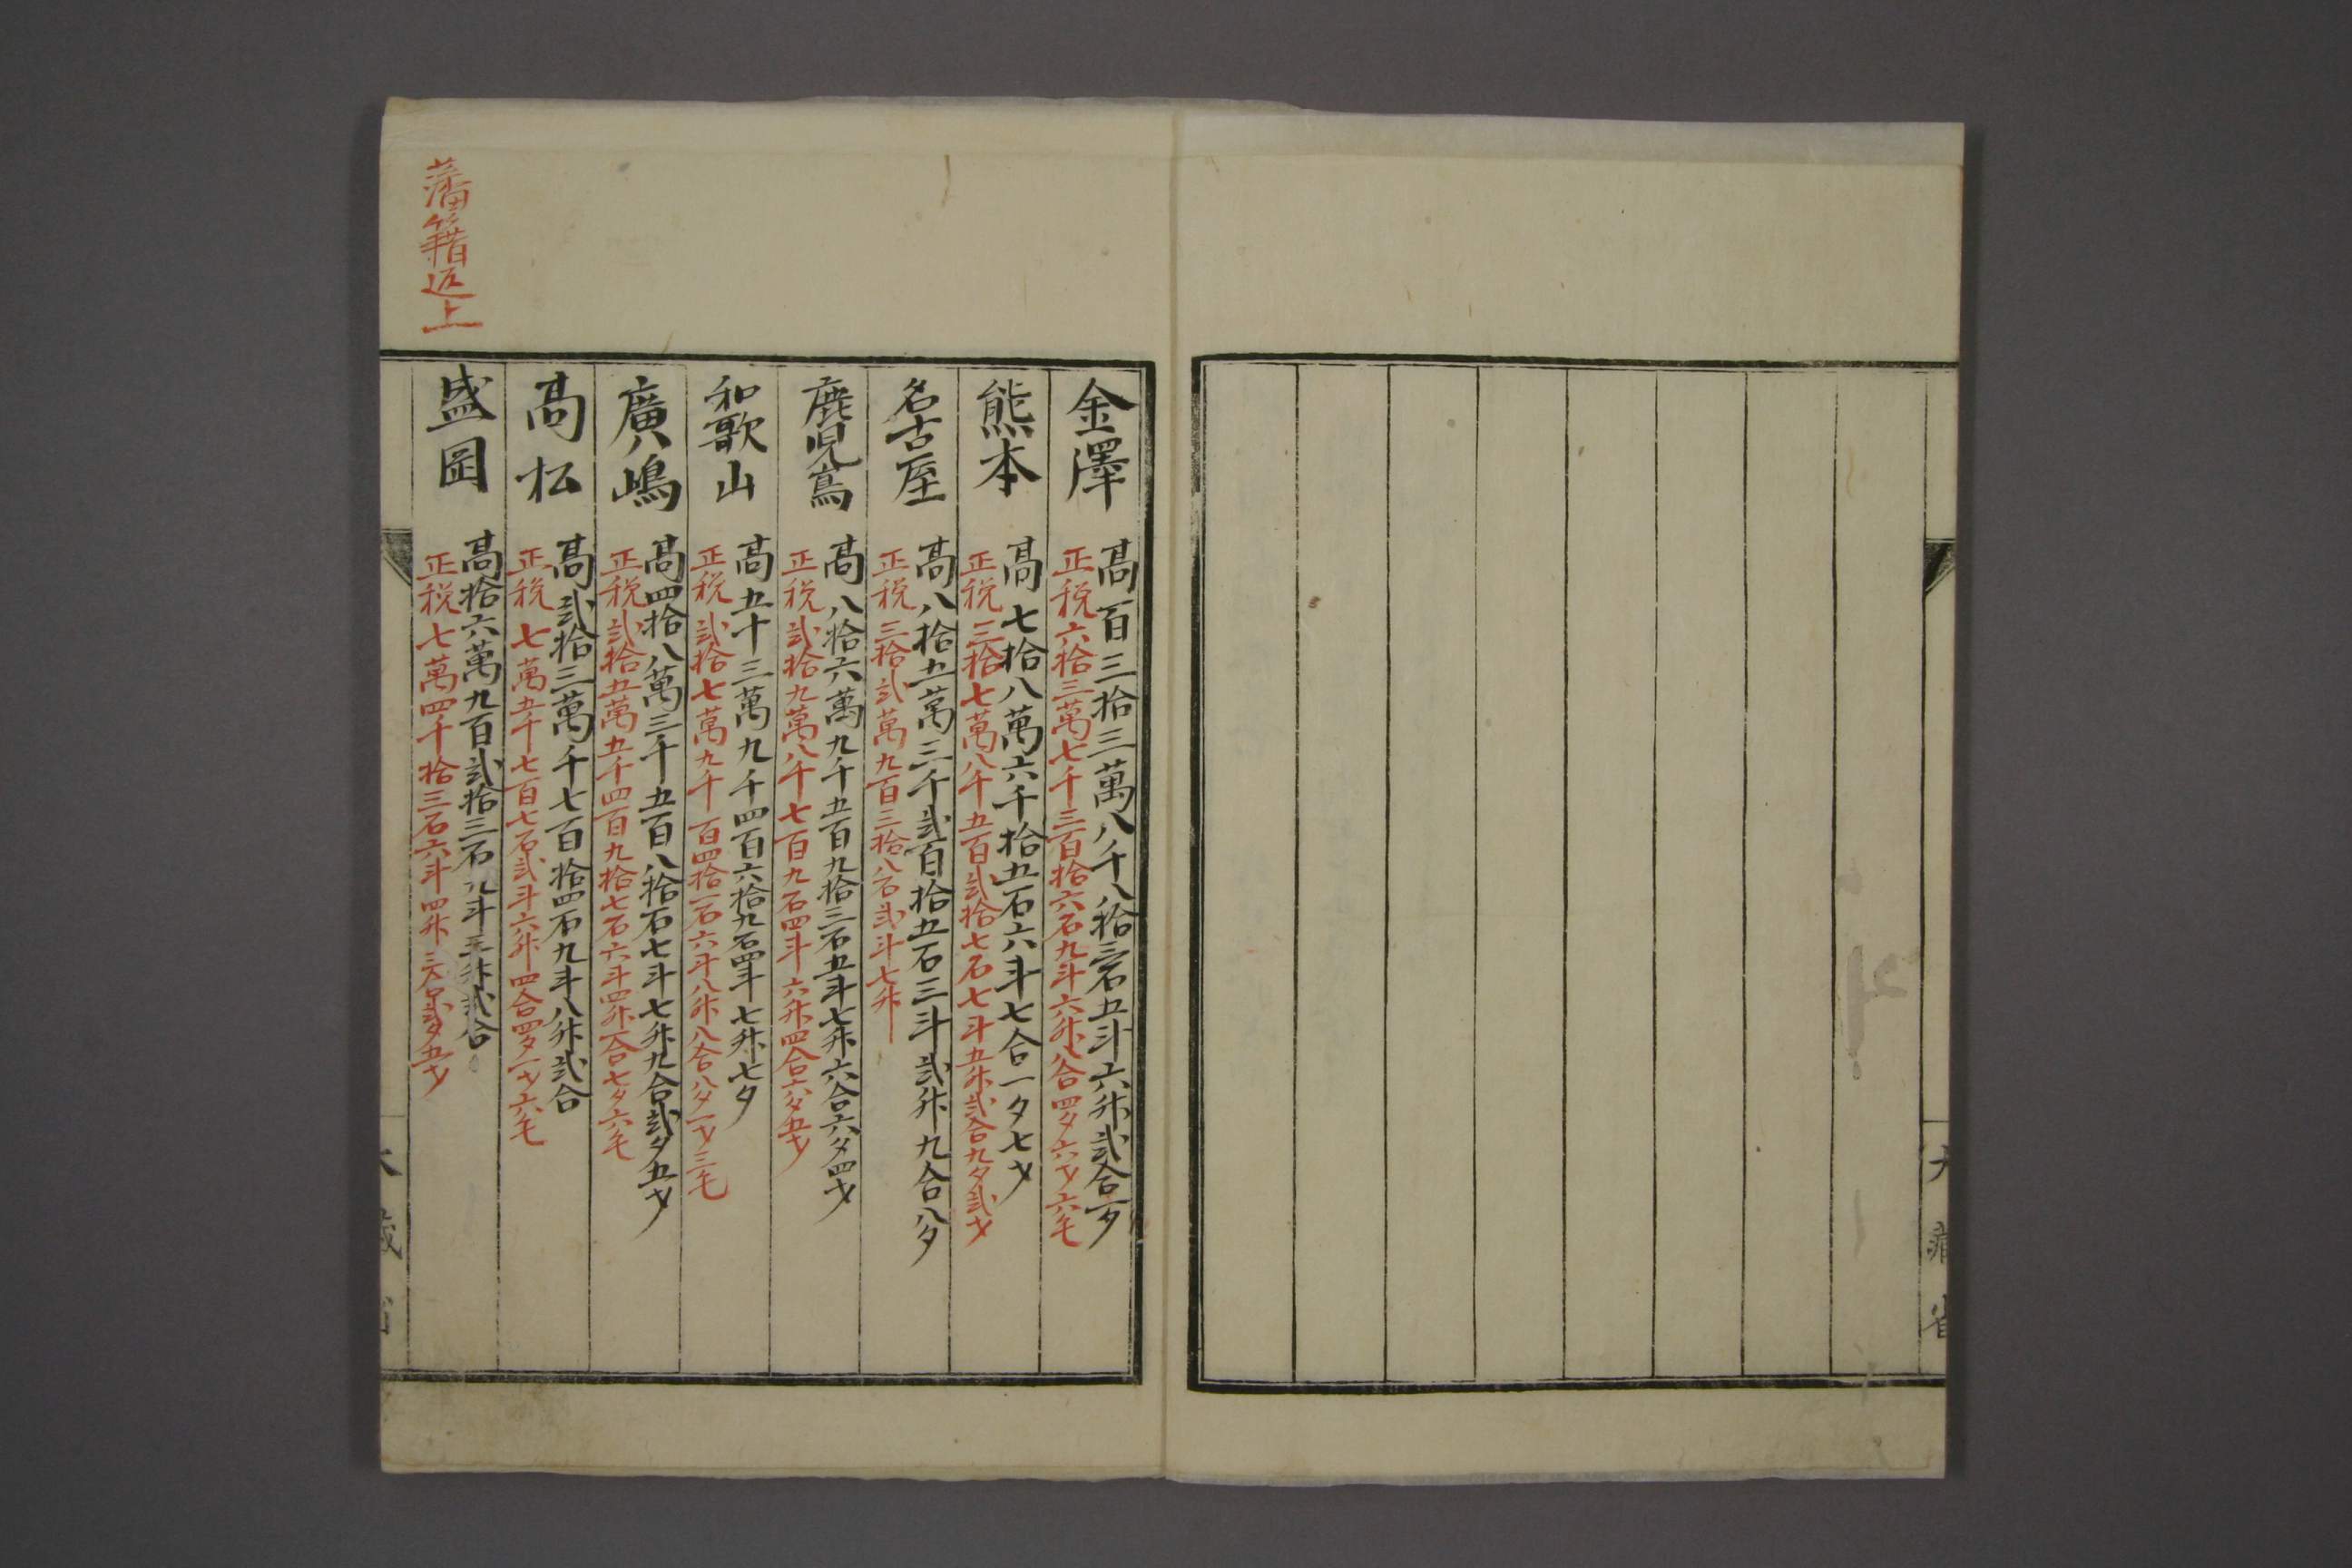 大藏省
金澤
高百三拾三萬八千八拾三石五斗六升弐合一夕
正税六拾三萬七千三百拾六石九斗六升八合四夕六才六毛
熊本
高七拾八萬六千拾五石六斗七合一夕七才
正税三拾七萬八千五百弐拾七石七斗五升弐合九夕弐才
名古屋
高八拾五萬三千弐百拾五石三斗弐升九合八夕
正税三拾弐萬九百三拾八石弐斗七升
鹿児嶌
高八拾六萬九千五百九拾三石五斗七升六合六夕四才
正税弐拾九萬八千七百九石四斗六升四合六夕五才
和歌山
高五十三萬九千四百六拾九石四斗七升七夕
正税弐拾七萬九千百四拾一石六斗八升八合八夕一才三毛
廣嶋
高四拾八萬三千五百八拾石七斗七升九合弐夕五才
正税弐拾五萬五千四百九拾七石六斗四升一合七夕六毛
高松
高弐拾三萬千七百拾四石九斗八升弐合
正税七萬五千七百七石弐斗六升四合四夕一才六毛
盛岡
高拾六萬九百弐拾三石九斗三升弐合
正税七萬四千拾三石六斗四升夕五才
藩籍返上
大藏省